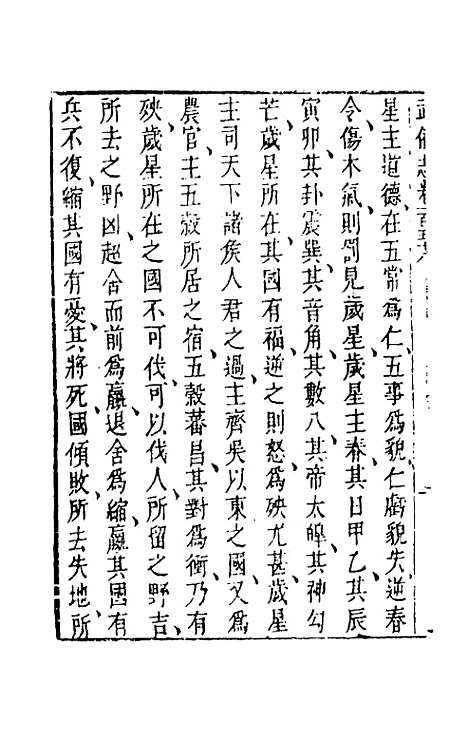 武備志卷一百五十八
星主道德在五常為仁五事為貌仁虧貌失逆春
令傷木氣則罰見歲星歲星主春其日甲乙其辰
寅卯其卦震巽其音角其數八其帝太皥其神勾
芒歲星所在其國有福逆之則怒為殃尤甚歲星
主司天下諸侯人君之過主齊吳以東之國又為
農官主五穀所居之宿五穀蕃昌其對為衝乃有
殃歲星所在之國不可伐可以伐人所留之野吉
所去之野凶超舍而前為贏退舍為縮贏其國有
兵不復縮其國有憂其將死國傾敗所去失地所